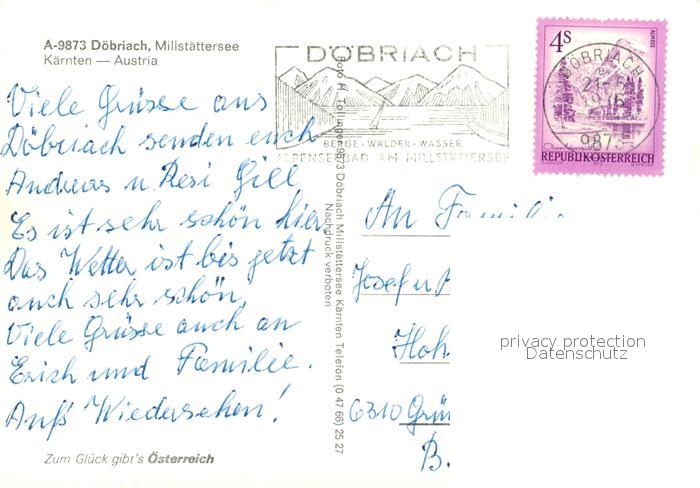 A-9873 Döbriach, Millstättersee
Kärnten — Austria
Viele Grüsse aus
Döbriach senden euch
Andreas u. Resi Gill
Es ist sehr schön hier,
Das Wetter ist bis jetzt
auch sehr schön,
Viele Grüsse auch an
Erich und Familie.
Auf's Wiedersehen!
Zum Glück gibt's Österreich
DÖBRIACH
BERGE · WÄLDER · WASSER
ALPENSEEBAD AM MILLSTÄTTERSEE
Foto H. Tollinger 9873 Döbriach Millstättersee Kärnten Telefon (0 47 66) 25 27
Nachdruck verboten
4S
ALMSEE
DÖBRIACH
9873
REPUBLIK ÖSTERREICH
An Famili
Josef u
Hoh
6310 Grü
B.
privacy protection
Datenschutz